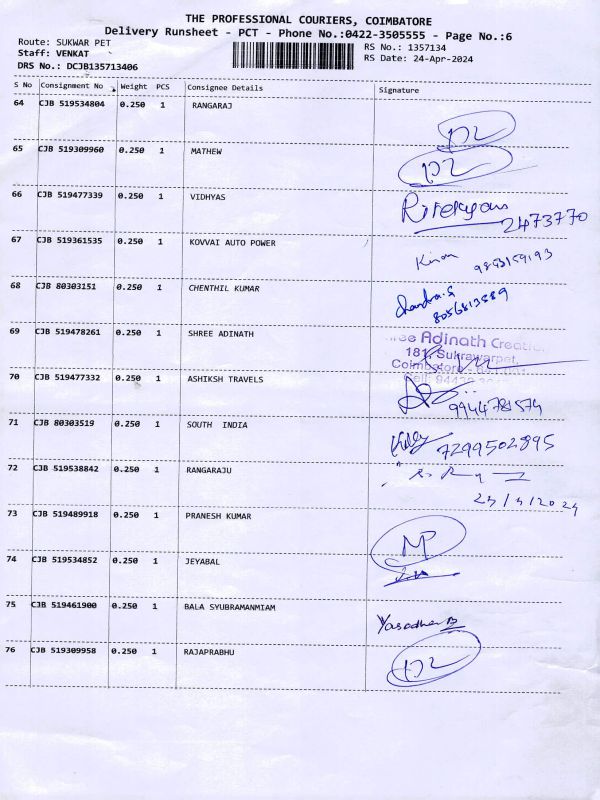 THE PROFESSIONAL COURIERS, COIMBATORE
Delivery Runsheet - PCT - Phone No.:0422-3505555 - Page No.:6
Route: SUKWAR PET
RS No.: 1357134
Staff: VENKAT
RS Date: 24-Apr-2024
DRS No.: DCJB135713406
S No Consignment No Weight PCS Consignee Details Signature
64 CJB 519534804 0.250 1 RANGARAJ
DL
65 CJB 519309960 0.250 1 MATHEW
DL
66 CJB 519477339 0.250 1 VIDHYAS
2473770
67 CJB 519361535 0.250 1 KOVVAI AUTO POWER
Kiran
68 CJB 80303151 0.250 1 CHENTHIL KUMAR
Chandra.S
8056813889
69 CJB 519478261 0.250 1 SHREE ADINATH
ree Adinath Creation
181, Sukrawarpet,
Coimbatore
Cell: 94430
70 CJB 519477332 0.250 1 ASHIKSH TRAVELS
9944781574
71 CJB 80303519 0.250 1 SOUTH INDIA
7299502895
72 CJB 519538842 0.250 1 RANGARAJU
24/4/2024
73 CJB 519489918 0.250 1 PRANESH KUMAR
MP
74 CJB 519534852 0.250 1 JEYABAL
75 CJB 519461900 0.250 1 BALA SYUBRAMANMIAM
Yasodha
76 CJB 519309958 0.250 1 RAJAPRABHU
DL